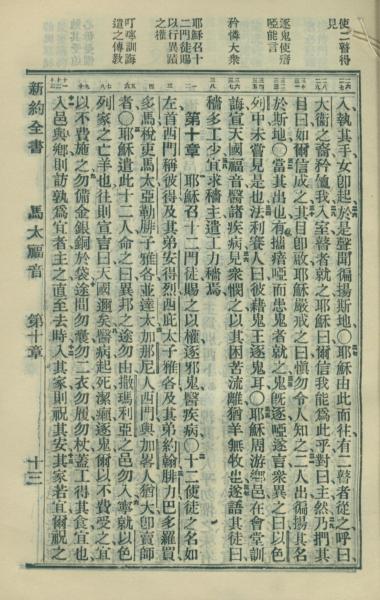 使二瞽得
見
逐鬼使瘖
啞能言
矜憐大衆
耶穌召十
二門徒賜
以行異蹟
之權
叮嚀訓誨
遣之傳敎
入執其手女卽起於是聲聞徧揚斯地○耶穌由此而往有二瞽者從之呼曰
大衞之裔矜恤我入室瞽者就之耶穌曰爾信我能爲此乎對曰主然乃捫其
目曰如爾信成之其目卽啟耶穌嚴戒之曰愼勿令人知之二人出徧揚其名
於斯地○當其出也有攜瘖啞而患鬼者就之鬼旣逐啞遂言衆異之曰以色
列中未嘗見是也法利賽人曰彼藉鬼王逐鬼耳○耶穌周游鄉邑在會堂訓
誨宣天國福音醫諸疾病見衆憫之以其困苦流離猶羊無牧也遂語其徒曰
穡多工少宜求穡主遣工力穡焉
第十章 耶穌召十二門徒賜之以權逐邪鬼醫疾病○十二使徒之名如
左首西門稱彼得及其弟安得烈西庇太子雅各及其弟約翰腓力巴多羅買
多馬稅吏馬太亞勒腓子雅各並達太加那尼人西門與加畧人猶大卽賣師
者○耶穌遣此十二人命之曰異邦之途勿由撒瑪利亞之邑勿入寧就以色
列家之亡羊也往則宣言曰天國邇矣醫病起死潔癩逐鬼爾以不費受之宜
以不費施之勿備金銀銅於袋途間勿囊勿二衣勿履勿杖蓋工得其食宜也
入邑與鄉則訪孰爲宜者主之直至去時入其家則祝其安其家若宜爾祝之
新約全書 馬太福音 第十章 十三